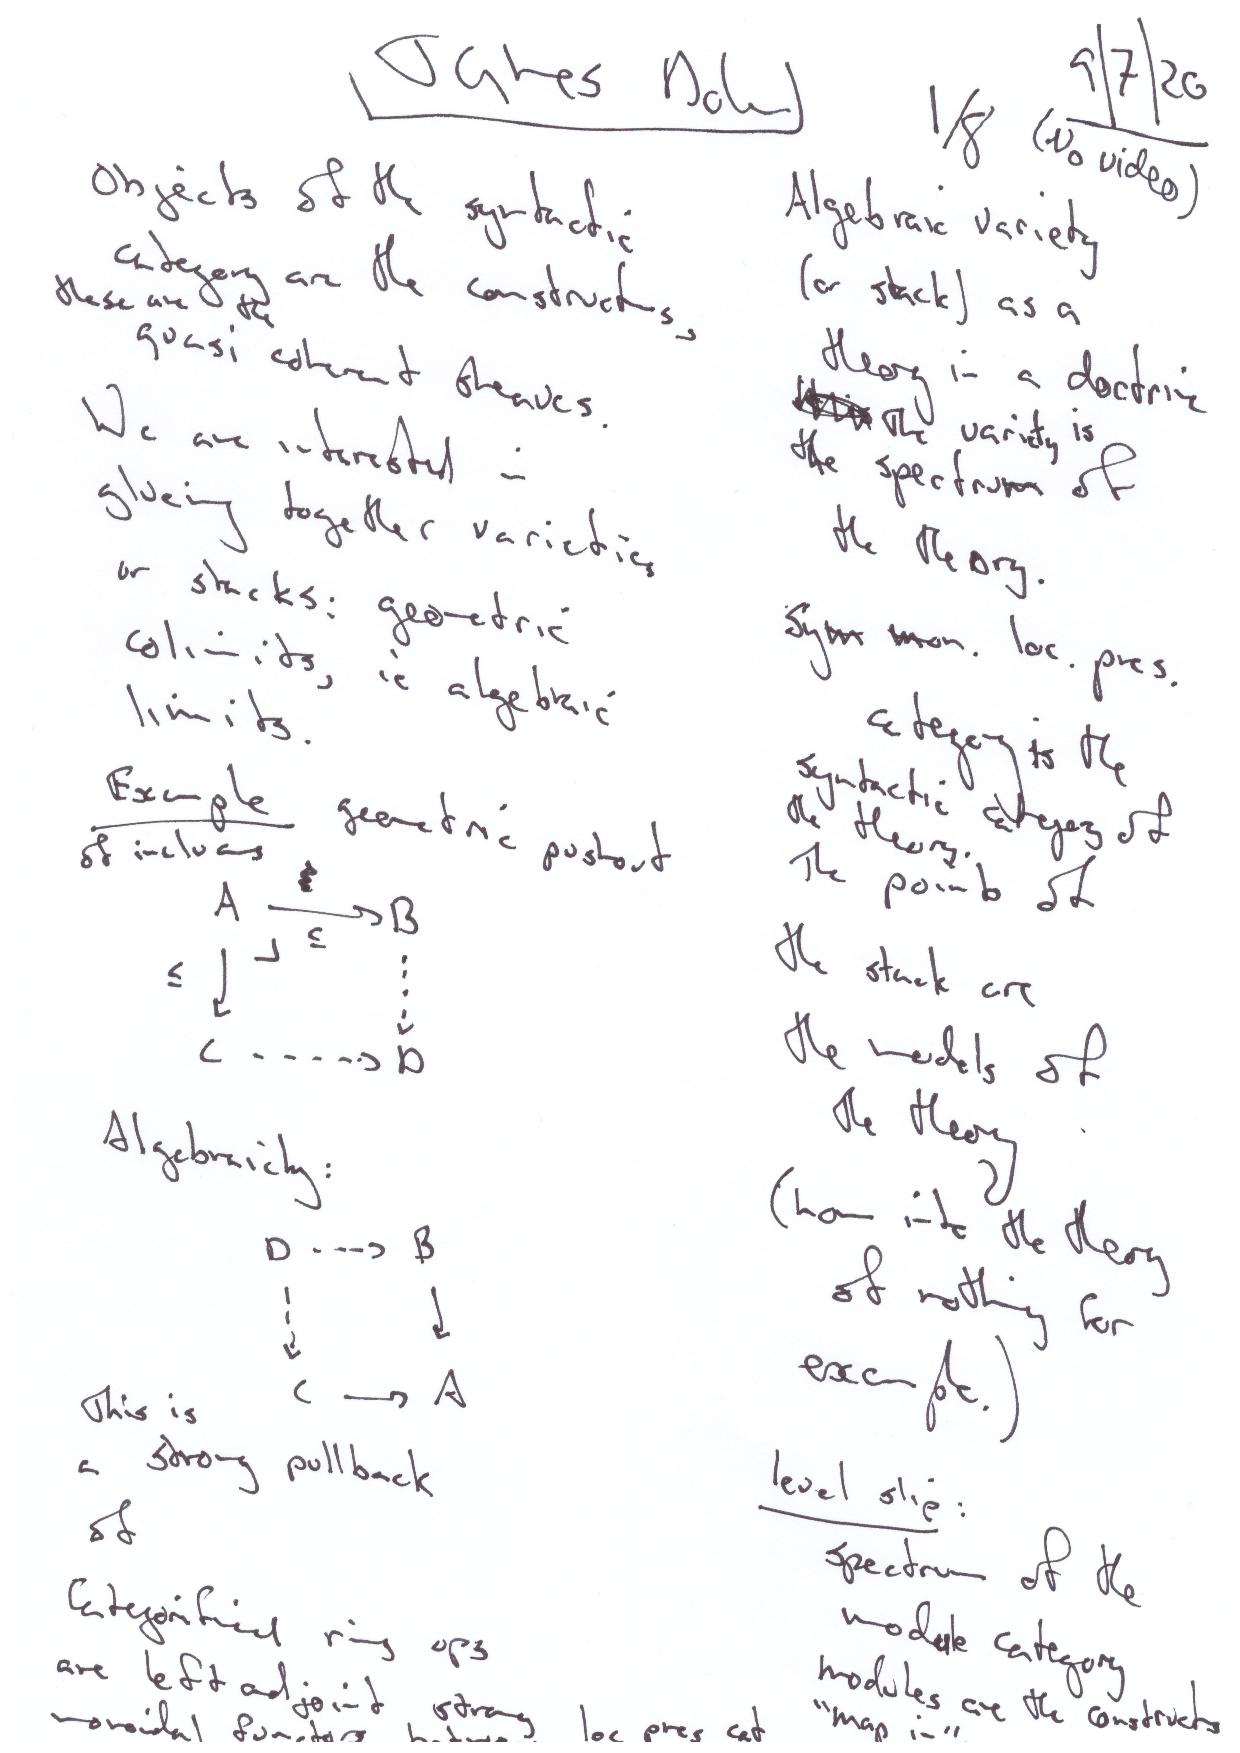 James Dolan
9/7/20
1/8
(No video)
Objects of the syntactic
category are the constructs,
these are the
quasi coherent sheaves.
We are interested in
glueing together varieties
or stacks: geometric
colimits, ie algebraic
limits.
Example geometric pushout
of inclusions
A → B
≤
≤
C ----> D
Algebraicly:
D ---> B
C → A
This is
a strong pullback
of
Categorified ring ops
are left adjoint strong
monoidal functors between loc pres cat
Algebraic variety
(or stack) as a
theory in a doctrine
The variety is
the spectrum of
the theory.
Sym mon. loc. pres.
category is the
syntactic category of
the theory.
The points of
the stack are
the models of
the theory
(hom into the theory
of nothing for
example.)
level slip:
spectrum of the
module category
modules are the constructs
"map in"